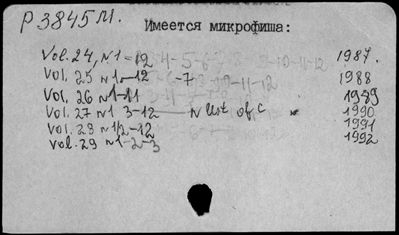 P 3845 M.
Имеется микрофиша:
Vol. 24, N 1-12 1987.
Vol. 25 N 1-12 1988
Vol. 26 N 1-11 1989
Vol. 27 N 1 3-12 N list of c 1990
Vol. 28 N 1/2-12 1991
Vol. 29 N 1-2-3 1992